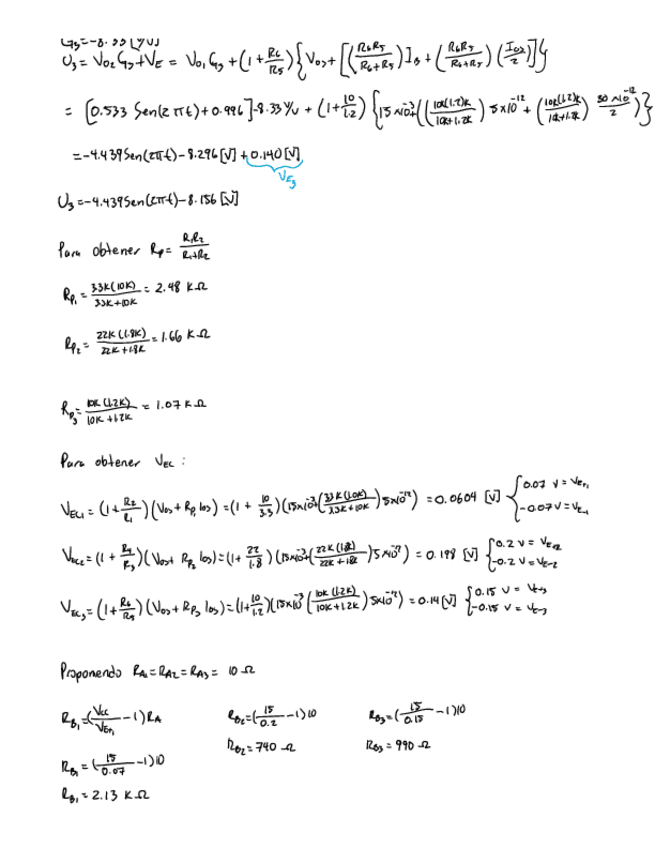 G₃=-8.33 [V/V]
U₃ = V₀₂ G₃ + V_E = V₀₁ G₃ + (1+R₆/R₅){V₀s + [(R₆R₅/R₆+R₅)] I_B + (R₆R₅/R₆+R₅)(I₀s/2)]}
= [0.533 Sen(2πt)+0.996]-8.33 V/V + (1+10/1.2){15x10⁻³+((10k(1.2)k/10k+1.2k) 5x10⁻¹² + (10k(1.2)k/10k+1.2k) 30x10⁻¹²/2)}
= -4.439 Sen(2πt) - 8.296 [V] + 0.140 [V]
V_E₃
U₃ = -4.439 Sen(2πt) - 8.156 [V]
Para obtener Rp = R₁R₂/R₁+R₂
Rp₁ = 3.3K(10K)/3.3K+10K = 2.48 KΩ
Rp₂ = 22K(1.8K)/22K+1.8K = 1.66 KΩ
Rp₃ = 10K(1.2K)/10K+1.2K = 1.07 KΩ
Para obtener V_EC :
V_EC₁ = (1+R₂/R₁)(V₀s + Rp₁ I₀s) = (1+10/3.3)(15x10⁻³+(3.3K(10K)/3.3K+10K)5x10⁻¹²) = 0.0604 [V] { 0.07 V = V_E+₁
-0.07 V = V_E-₁
V_EC₂ = (1+R₄/R₃)(V₀s + Rp₂ I₀s) = (1+22/1.8)(15x10⁻³+(22K(1.8K)/22K+1.8K)5x10⁻¹²) = 0.198 [V] { 0.2 V = V_E+₂
-0.2 V = V_E-₂
V_EC₃ = (1+R₆/R₅)(V₀s + Rp₃ I₀s) = (1+10/1.2)(15x10⁻³(10K(1.2K)/10K+1.2K)5x10⁻¹²) = 0.14 [V] { 0.15 V = V_E+₃
-0.15 V = V_E-₃
Proponendo R_A₁ = R_A₂ = R_A₃ = 10 Ω
R_B₁ = (Vcc/V_E+₁ -1) R_A
R_B₂ = (15/0.2 -1)10
R_B₃ = (15/0.15 -1)10
R_B₁ = (15/0.07 -1)10
R_B₂ = 740 Ω
R_B₃ = 990 Ω
R_B₁ = 2.13 KΩ